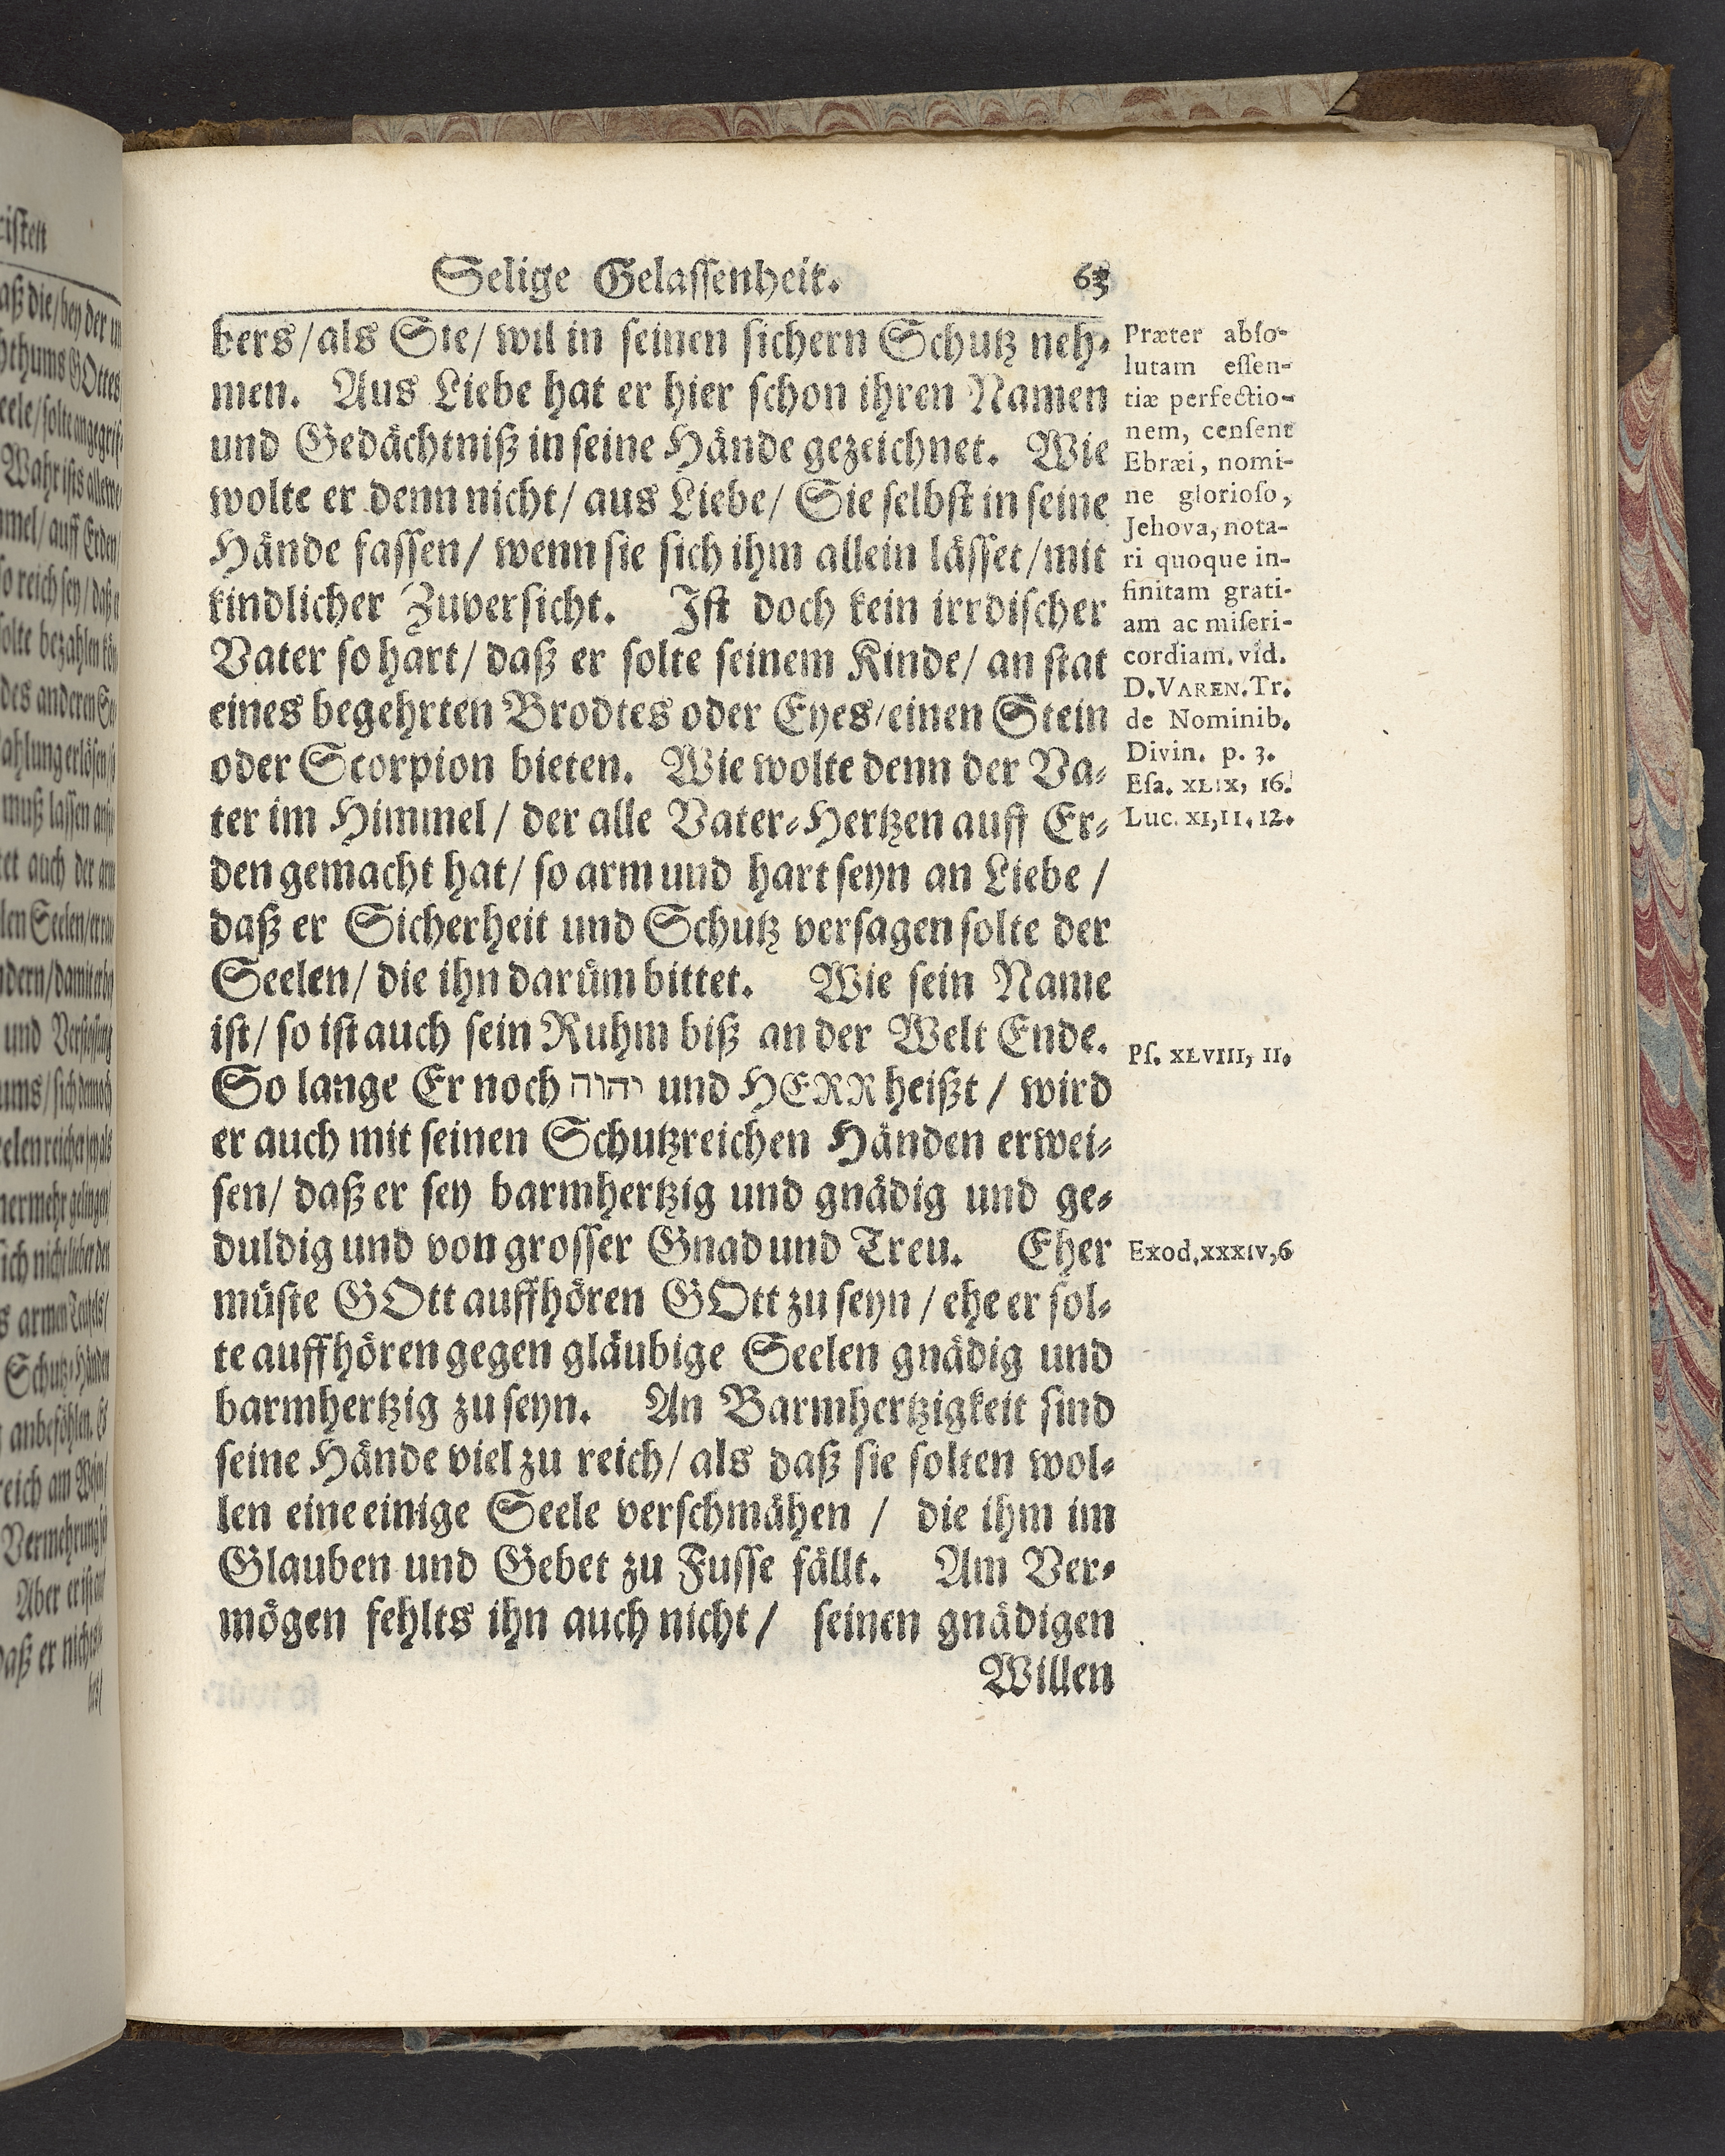 Selige Gelassenheit. 63
bers/als Sie/ wil in seinen sichern Schutz neh-
men. Aus Liebe hat er hier schon ihren Namen
und Gedächtniß in seine Hände gezeichnet. Wie
wolte er denn nicht/ aus Liebe/ Sie selbst in seine
Hände fassen/ wenn sie sich ihm allein lässet/mit
kindlicher Zuversicht. Ist doch kein irrdischer
Vater so hart/ daß er solte seinem Kinde/ an stat
eines begehrten Brodtes oder Eyes/einen Stein
oder Scorpion bieten. Wie wolte denn der Va-
ter im Himmel/ der alle Vater-Hertzen auff Er-
den gemacht hat/ so arm und hart seyn an Liebe/
daß er Sicherheit und Schutz versagen solte der
Seelen/ die ihn darüm bittet. Wie sein Name
ist/ so ist auch sein Ruhm biß an der Welt Ende.
So lange Er noch יהוה und HERR heißt/ wird
er auch mit seinen Schutzreichen Händen erwei-
sen/ daß er sey barmhertzig und gnädig und ge-
duldig und von grosser Gnad und Treu. Eher
müste GOtt auffhören GOtt zu seyn/ ehe er sol-
te auffhören gegen gläubige Seelen gnädig und
barmhertzig zu seyn. An Barmhertzigkeit sind
seine Hände viel zu reich/ als daß sie solten wol-
len eine einige Seele verschmähen/ die ihm im
Glauben und Gebet zu Fusse fällt. Am Ver-
mögen fehlts ihn auch nicht/ seinen gnädigen
Willen
Præter abso-
lutam essen-
tiæ perfectio-
nem, censent
Ebræi, nomi-
ne glorioso,
Jehova, nota-
ri quoque in-
finitam grati-
am ac miseri-
cordiam. vid.
D. VAREN. Tr.
de Nominib.
Divin. p. 3.
Esa. XLIX, 16.
Luc. XI, 11. 12.
Ps. XLVIII, 11.
Exod, XXXIV, 6